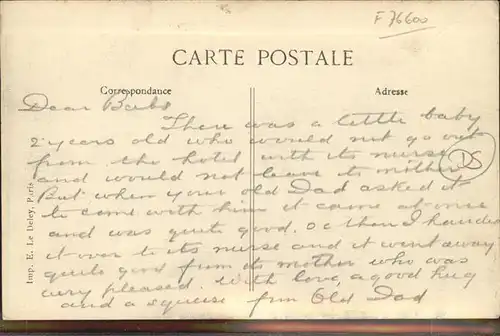 F 76600
CARTE POSTALE
Correspondance
Adresse
Dear Babs
There was a little baby
2 years old who would not go out
from the hotel with its nurse
and would not leave its mother
But when your old Dad asked it
to come with him it came at once
and was quite good. then I handed
it over to its nurse and it went away
quite good from its mother who was
very pleased. With love, a good hug
and a squeeze from Old Dad
DS
Imp. E. Le Deley, Paris